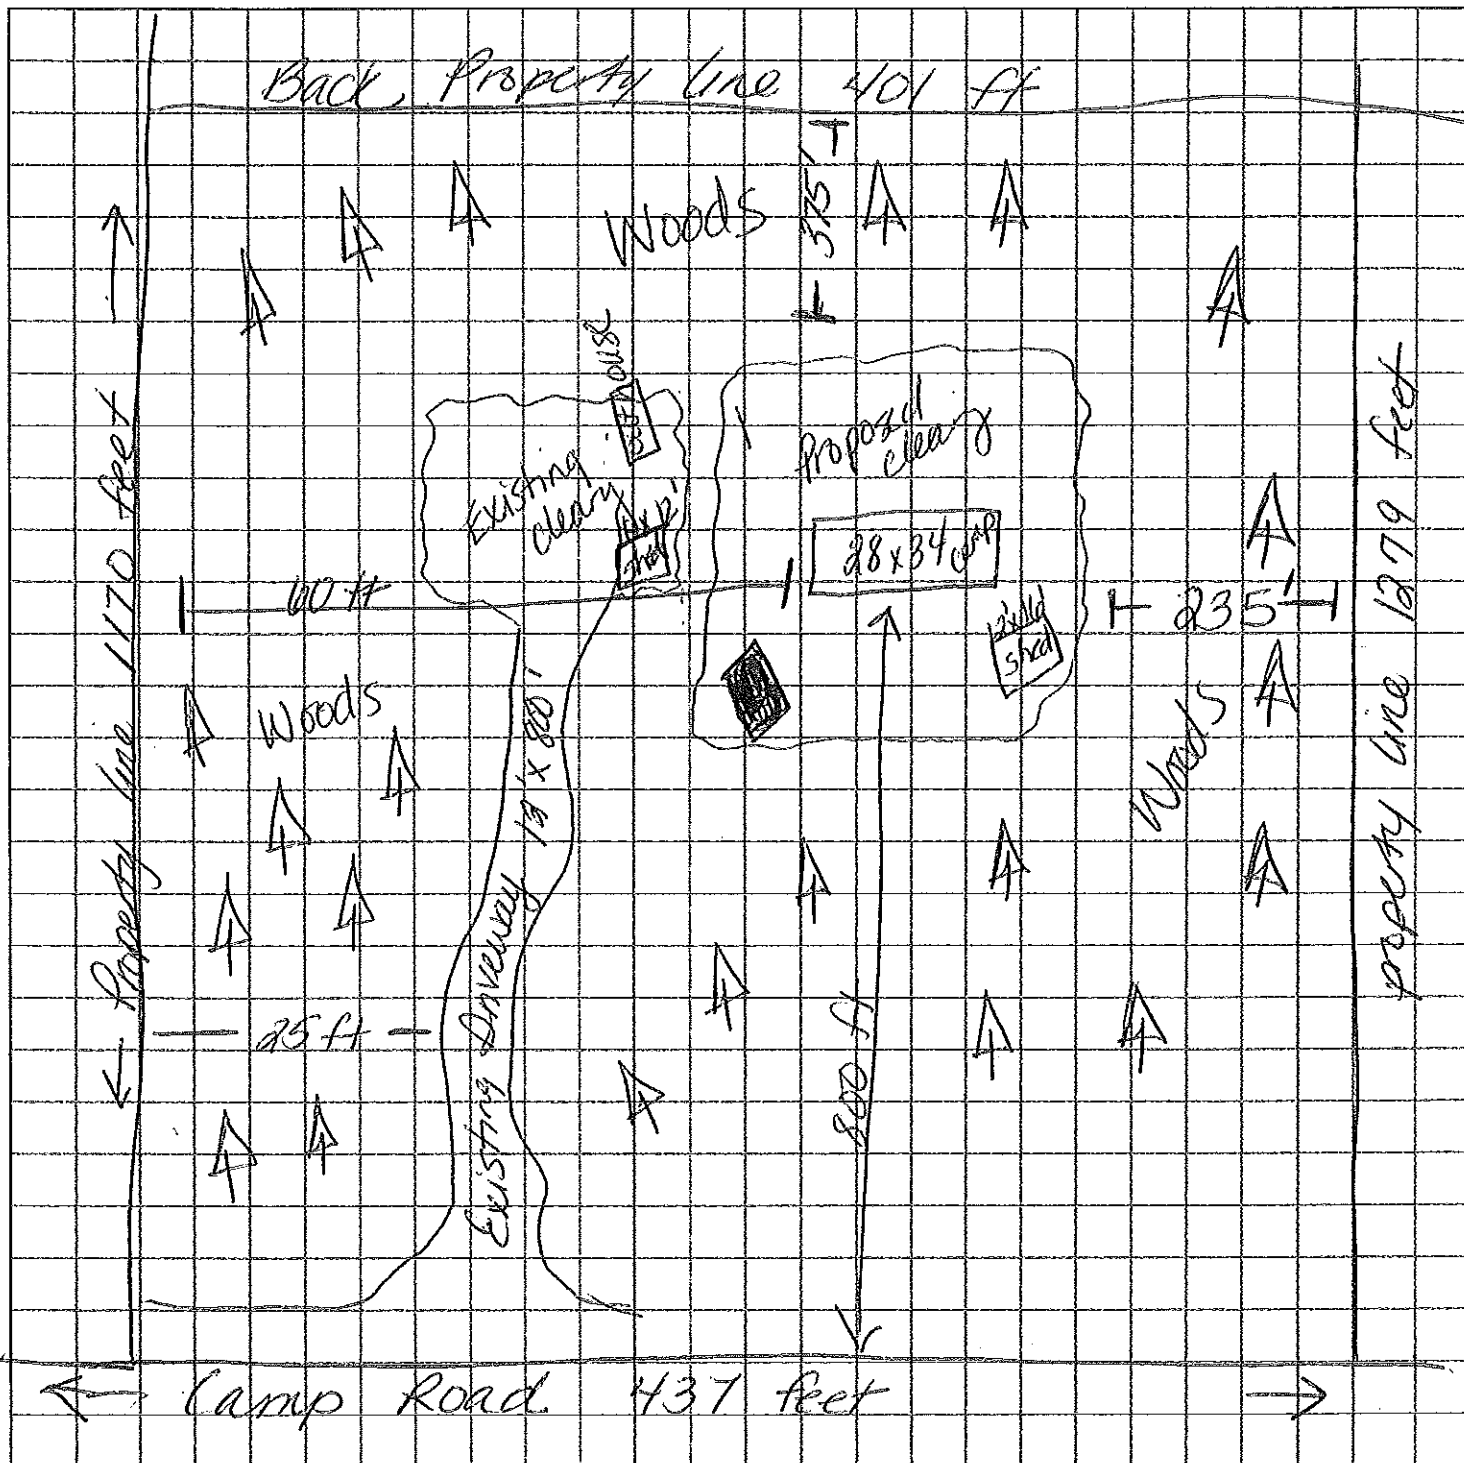 Back Property line 401 ft
Woods
375'
Property line 1170 feet
out house
Existing
cleary
12'
shed
Proposed
cleary
28 x 34 camp
60 ft
235'
shed
property line 1279 feet
Woods
Woods
Existing Driveway
25 ft
800 ft
Camp Road 437 feet